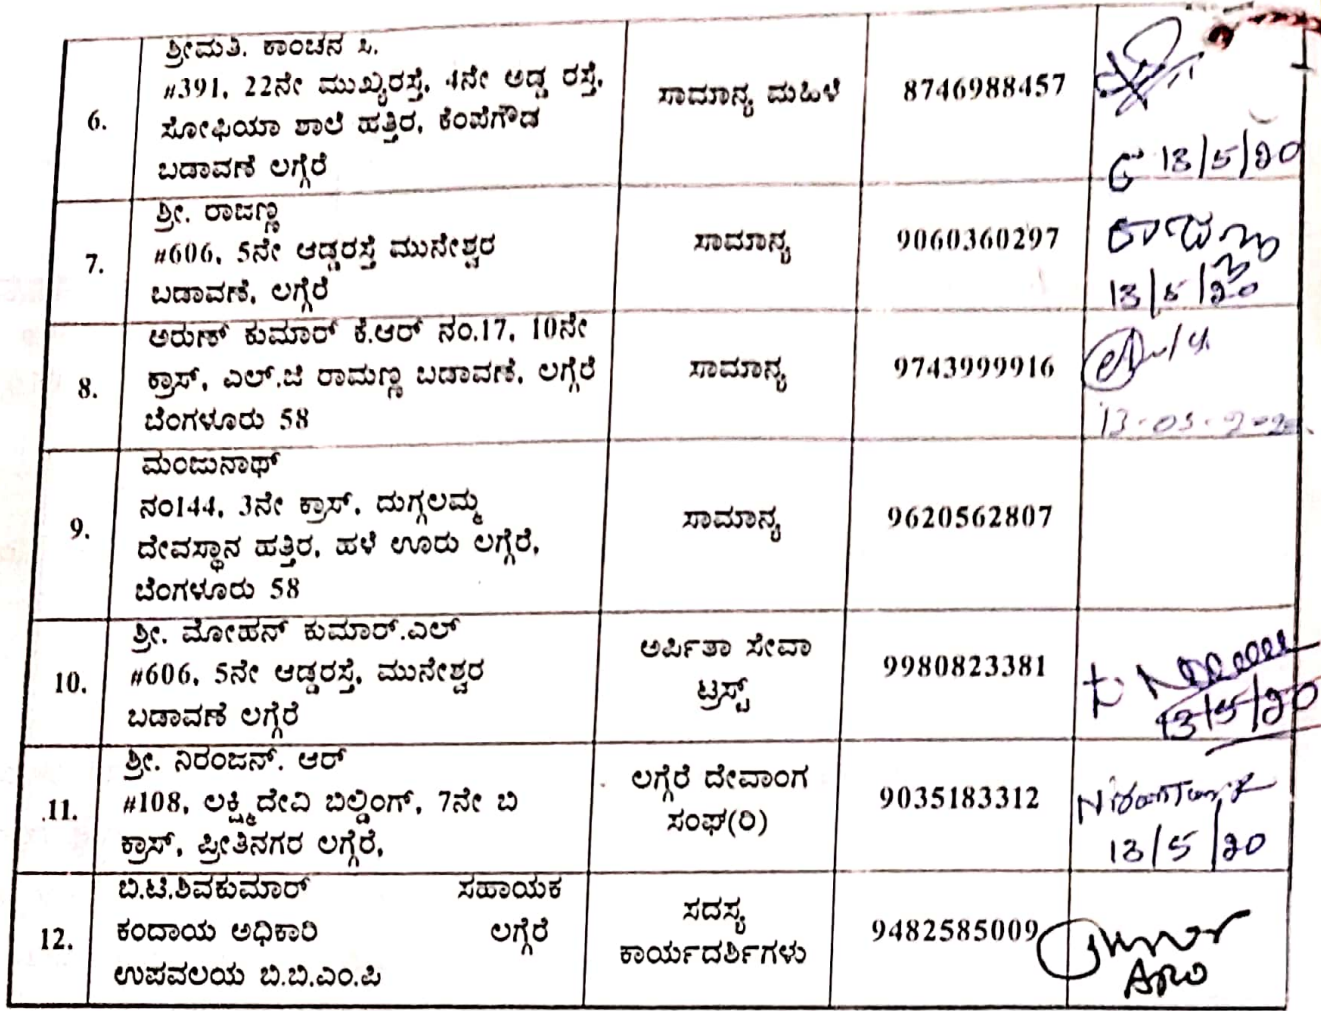 6.
ಶ್ರೀಮತಿ. ಕಾಂಚನ ಸಿ.
#391, 22ನೇ ಮುಖ್ಯರಸ್ತೆ, 4ನೇ ಅಡ್ಡ ರಸ್ತೆ,
ಸೋಫಿಯಾ ಶಾಲೆ ಹತ್ತಿರ, ಕೆಂಪೆಗೌಡ
ಬಡಾವಣೆ ಲಗ್ಗೆರೆ
ಸಾಮಾನ್ಯ ಮಹಿಳೆ
8746988457
13/5/20
7.
ಶ್ರೀ. ರಾಜಣ್ಣ
#606, 5ನೇ ಆಡ್ಡರಸ್ತೆ ಮುನೇಶ್ವರ
ಬಡಾವಣೆ, ಲಗ್ಗೆರೆ
ಸಾಮಾನ್ಯ
9060360297
ರಾಜಣ್ಣ
13/5/20
8.
ಅರುಣ್ ಕುಮಾರ್ ಕೆ.ಆರ್ ನಂ.17, 10ನೇ
ಕ್ರಾಸ್, ಎಲ್.ಜಿ ರಾಮಣ್ಣ ಬಡಾವಣೆ, ಲಗ್ಗೆರೆ
ಬೆಂಗಳೂರು 58
ಸಾಮಾನ್ಯ
9743999916
13-05-2020
9.
ಮಂಜುನಾಥ್
ನಂ144, 3ನೇ ಕ್ರಾಸ್, ದುಗ್ಗಲಮ್ಮ
ದೇವಸ್ಥಾನ ಹತ್ತಿರ, ಹಳೆ ಊರು ಲಗ್ಗೆರೆ,
ಬೆಂಗಳೂರು 58
ಸಾಮಾನ್ಯ
9620562807
10.
ಶ್ರೀ. ಮೋಹನ್ ಕುಮಾರ್.ಎಲ್
#606, 5ನೇ ಆಡ್ಡರಸ್ತೆ, ಮುನೇಶ್ವರ
ಬಡಾವಣೆ ಲಗ್ಗೆರೆ
ಅರ್ಪಿತಾ ಸೇವಾ
ಟ್ರಸ್ಟ್
9980823381
13/5/20
11.
ಶ್ರೀ. ನಿರಂಜನ್. ಆರ್
#108, ಲಕ್ಷ್ಮಿದೇವಿ ಬಿಲ್ಡಿಂಗ್, 7ನೇ ಬಿ
ಕ್ರಾಸ್, ಪ್ರೀತಿನಗರ ಲಗ್ಗೆರೆ,
ಲಗ್ಗೆರೆ ದೇವಾಂಗ
ಸಂಘ(ರಿ)
9035183312
13/5/20
12.
ಬಿ.ಟಿ.ಶಿವಕುಮಾರ್ ಸಹಾಯಕ
ಕಂದಾಯ ಅಧಿಕಾರಿ ಲಗ್ಗೆರೆ
ಉಪವಲಯ ಬಿ.ಬಿ.ಎಂ.ಪಿ
ಸದಸ್ಯ
ಕಾರ್ಯದರ್ಶಿಗಳು
9482585009
ARO